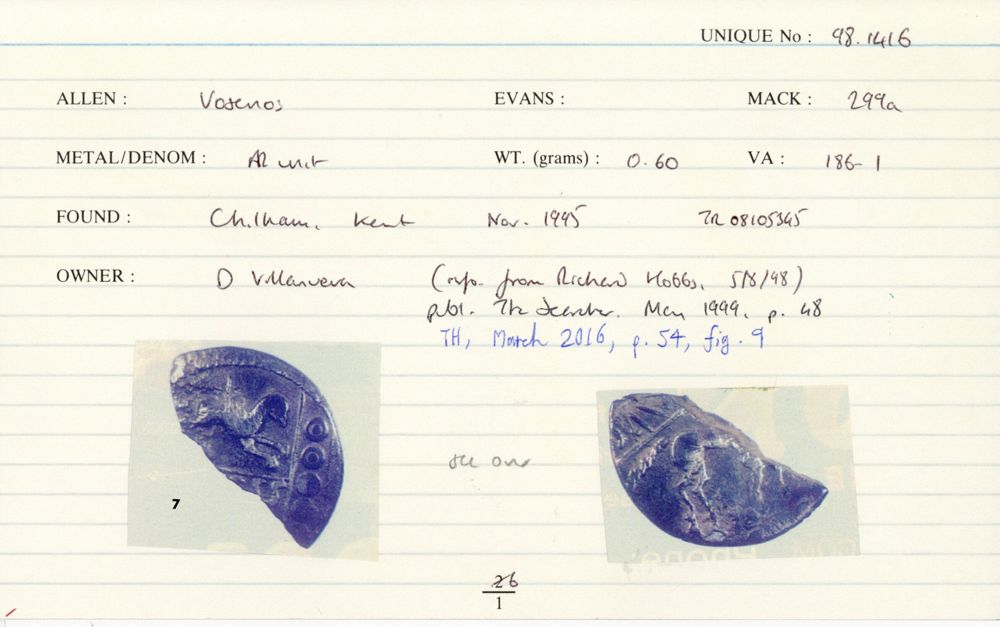 UNIQUE No : 98.1416
ALLEN : Vosenos EVANS : MACK : 299a
METAL/DENOM : AR unit WT. (grams) : 0.60 VA : 186-1
FOUND : Chilham, Kent Nov. 1995 TR 08105345
OWNER : D Villanueva (info. from Richard Hobbs, 5/8/98)
publ. The Searcher, May 1999, p. 48
TH, March 2016, p. 54, fig. 9
see over
7
26
1